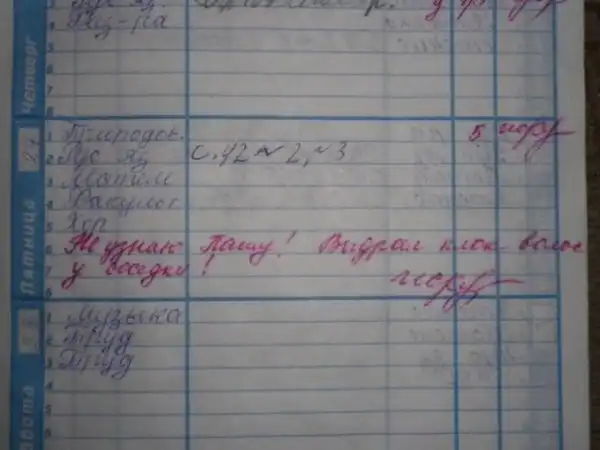 Рус яз.
Физ-ра
Четверг
Природов. 5
Рус яз с. 42 № 2, № 3
Матем
Факульт
Хор
Не узнаю Пашу! Выдрал клок волос
у соседки!
Пятница
Музыка
Труд
Труд